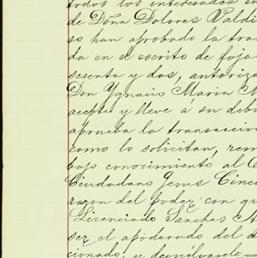 todos los interesados en
de Doña Dolores Valdi
so han aprobado la tran
da en el escrito de foja
sesenta y dos, autoriza
Don Ygnacio Maria
acepte y lleve á su debi
aprueba la transaccion
como lo solicitan, rem
bajo conocimiento al C
Ciudadano Gems Cinc
razon del poder con qu
Licenciado Sanches
ser el apoderado del
cionado; y devuélvase